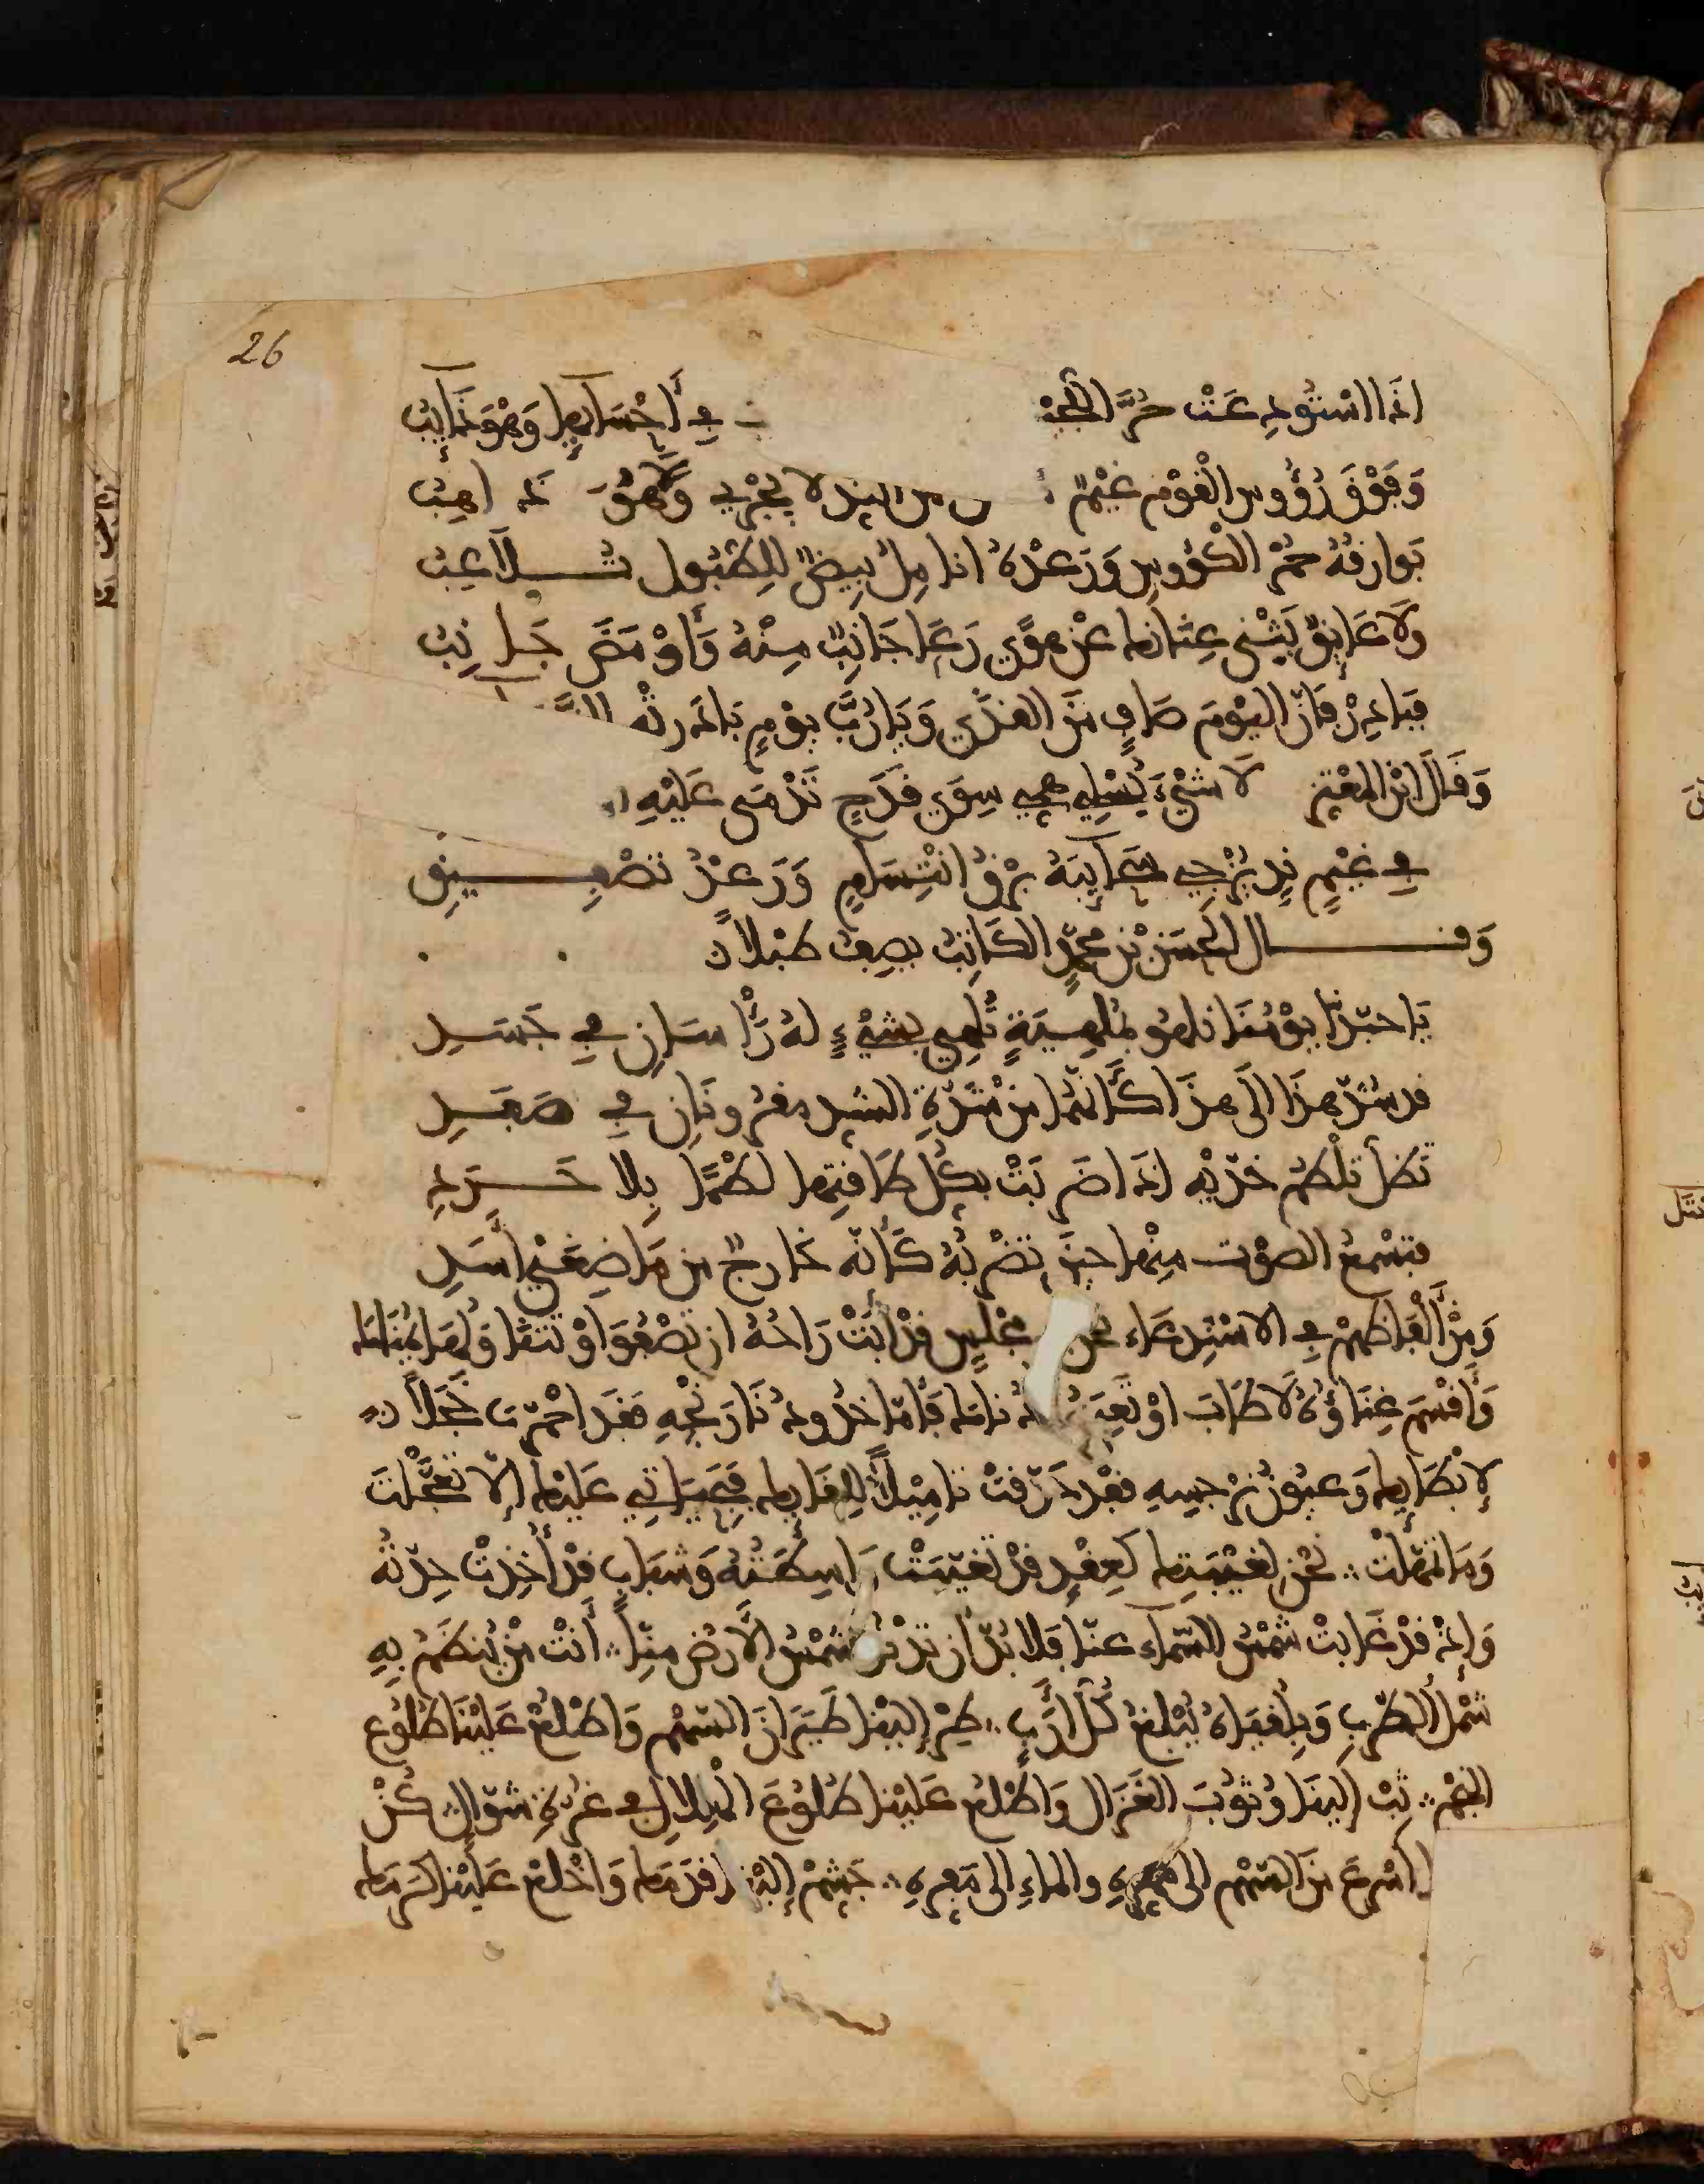 26
اذَا اسْتُودِعَتْ حُرَّ اللُّجَيْنِ فِي أَحْشَائِهَا وَهْوَ ذَائِبُ
وَفَوْقَ رُؤُوسِ الْقَوْمِ غَيْمٌ من النِدِ لَا يَجْرِي وَلَا هُوَ ذَاهِبُ
بَوَارِقُهُ حُمْرُ الكُؤُوسِ وَرَعْدُهُ انَامِلُ بِيضٌ لِلطُّبُولِ تُــلَاعِبُ
وَلَا عَائِقٌ يَثْنِي عِنَانَهَا عَنْ هَوًى رَعَا جَانِبٌ مِنْهُ وَأَوْمَضَ جَانِبُ
فَبَادِرْ فَإِنَّ اليَوْمَ صَافٍ مِنَ القَذَى وَيَا رُبَّ يَوْمٍ بَادَرتْهُ
وَقَالَ ابْنُ المُعْتَزِ لَا شَيْءَ يُسْلِي هَمِّي سِوَى قَدَحٍ تَدْمَى عَلَيْهِ
فِي غَيْمِ نِدٍ يُزْجِي سَحَائِبَهُ بَرْقُ ابْتِسَامٍ وَرَعْدُ تَصْفِــيقِ
وَقَــال الحَسَنُ بْنُ مُحَمَّدٍ الكَاتِبُ يَصِفُ طَبْلًا
يَا حَبَّذَا يَوْمُنَا نَلهُو بِمُلْهِيَةٍ تُلْهِي بِشَيْءٍ لَهُ رَأْسَانِ فِي جَسَدِ
قد شُدَّ هذَا الى هذَا كَأَنَّهُمَا مِنْ شَدَّةِ الشَدِ مَقْرُونَانِ فِي صَفَدِ
تَظَلُّ تَلْطِمُ خَدَّيْهِ اذَا ضَرَبَتْ بِكُلِّ طَاقَتِهَا لَطْمًا بِلَا حَــرَدِ
فتَسْمَعُ الصَّوْتَ مِنْهَا حِينَ تَضْرِبُهُ كَأَنَّهُ خَارِجٌ مِن مَاضِغَيْ أَسَدِ
وَمِنْ أَلْفَاظِهِمْ فِي الاسْتِدعَاءِ نَحْنُ مَجْلِسٍ قَدْ أَبَتْ رَاحُهُ ان تَصْفُوَ اوْ تَتَنَا وَلَهَا يُمْنَاهَا
وَأَقْسَمَ غِنَاؤُهُ لَا طَابَ اوْ فَأَمَّا خُدُودُ نَارَنْجِهِ فَقَد احْمَرَّتْ خَجَلًا
لإبْطَائِهَا وَعُيُونُ نَرْجِسِهِ فقَدْ حَدَّقَتْ تَامِيلًا لِلِقَائِهَا فَبِحَيَاتِي عَلَيْهَا إلَّا تَعَجَّلْتَ
وَمَا تَمَهَّلْتَ نَحْنُ لِغَيْبَتِهَا كَعِقْدٍ قدْ تَغَيَّبَتْ وَاسِطَتُهُ وَشَبَابٍ قَدْ أُخِذَتْ جِدَّتُهُ
وَإذْ قَدْ غَابَتْ شَمْسُ السَّمَاءِ عَنَّا فَلَا بُدَّ ان تَدْنُوَ شَمْسُ الأَرْضِ مِنَّا أَنْتَ مَنْ يُنظَمُ بِهِ
شَمْلُ الطَّرَبِ وَبِلُقْيَاهُ يُبْلَغُ كُلُّ أَرَبٍ طِرْ إِلَيْنَا طَيَرَانَ السَّهْمِ وَاطْلُعْ عَلَيْنَا طُلُوعَ
النَجْمِ ثِبْ إِلَيْنَا وُثُوبَ الغَزَالِ وَاطْلُعْ عَلَيْنَا طُلُوعَ الهِلَالِ فِي غُرَّةِ شَوَّالٍ كُنْ
اسْرَعَ مِنَ السَّهْمِ الى مَمَرِّهِ والمَاءِ الى مَقَرِّهِ جَشِّمْ إِلَيْنَا قَدَمَهَا وَاخْلَعْ عَلَيْنَا كَرَمَهَا